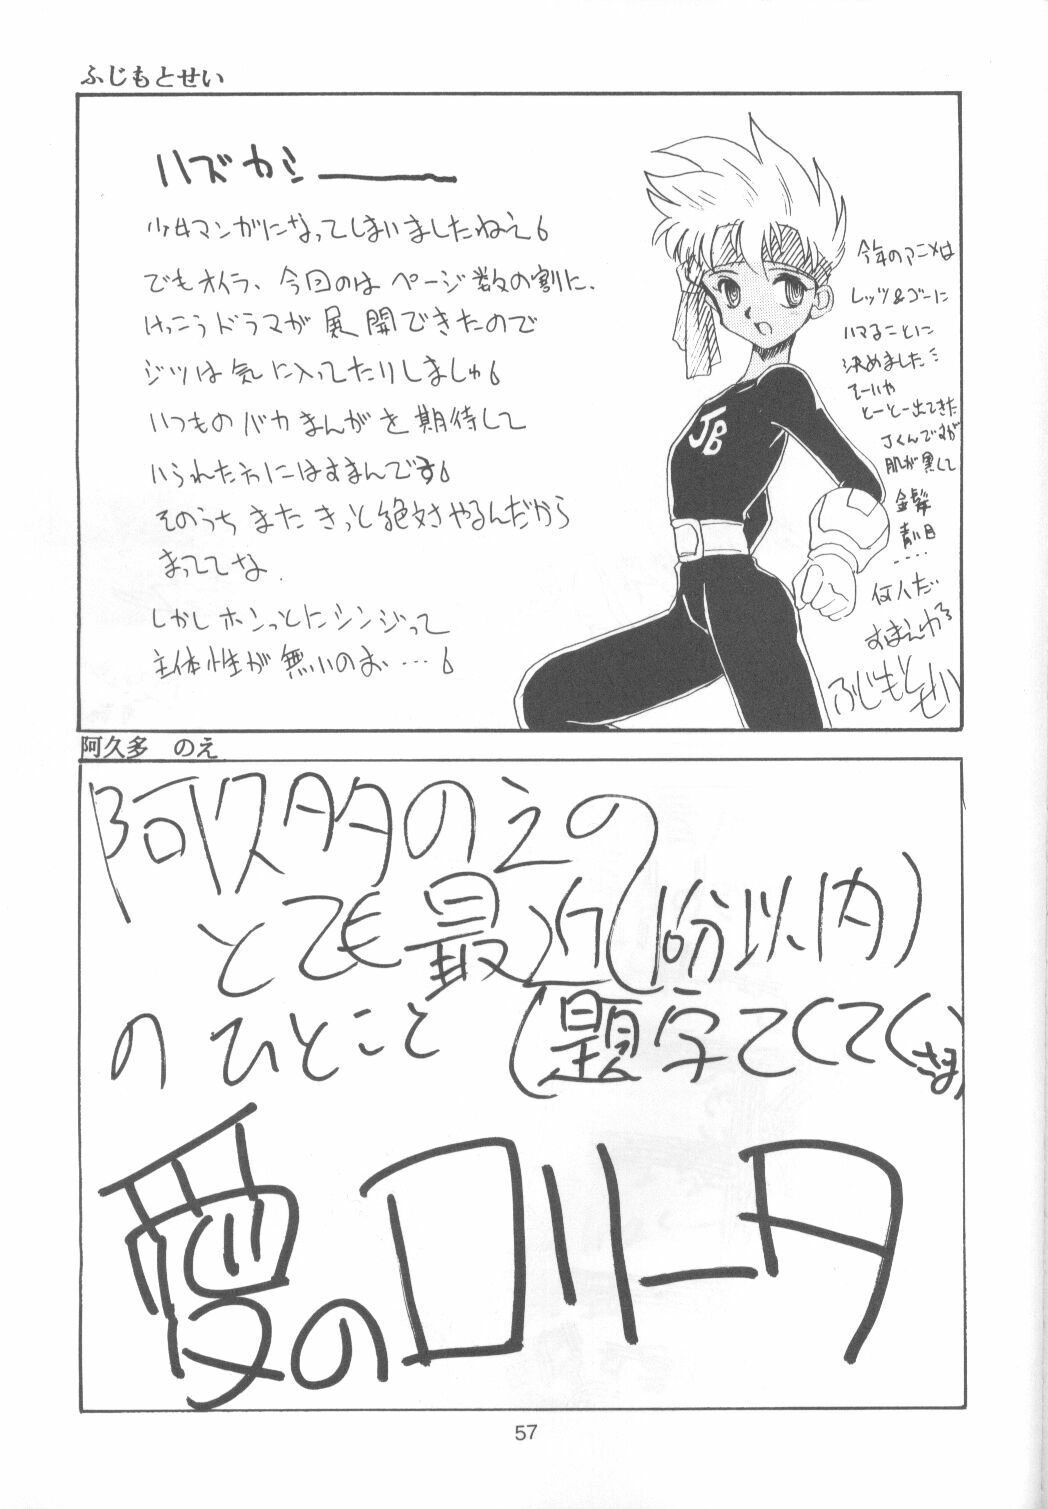 ふじもとせい
ハズカシ———
少女マンガになってしまいましたねえ
でもオイラ、今回のは ページ数の割に、
けっこうドラマが 展開できたので
ジツは気に入ってたりしましゅ
いつものバカまんがを期待して
いられた方にはすまんです
そのうち またきっと絶対やるんだから
まっててな
しかしホンっとにシンジって
主体性が無いのお…
JB
今年のアニメは
レッツ&ゴーに
ハマることに
決めました…
てーいや
とーとー出てきた
Jくんですが
肌が黒くて
金髪
青い目
‥‥
何人だ
すまんかろ
ふじもとせい
阿久多 のえ
阿久多のえの
とても最近(1分以内)
のひとこと(題字てくてくさま)
愛のロリータ
57